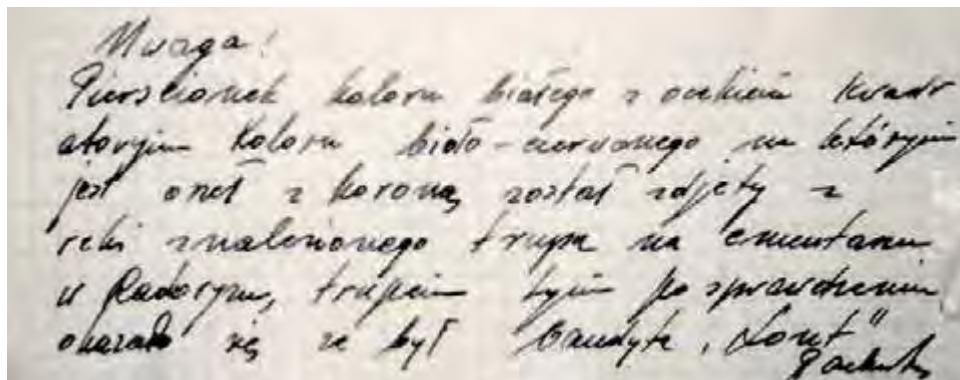 Uwaga!
Pierscionek koloru białego z oczkiem kwadr
atowym koloru biało-czerwonego na którym
jest orzeł z koroną został zdjęty z
ręki znalezionego trupa na cmentarzu
w Radoryżu, trupem tym po sprawdzeniu
okazało się ze był bandyta „Lont”